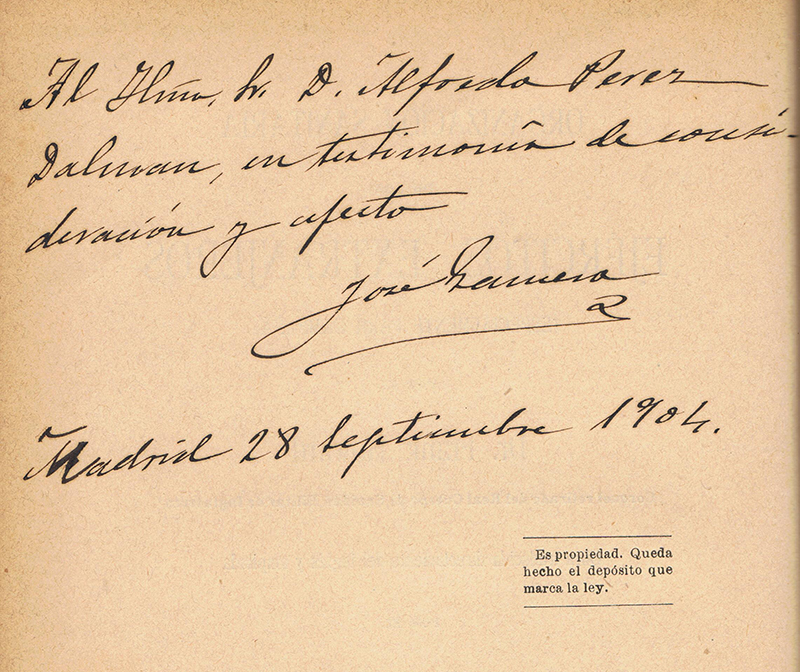 Al Ilmo. Sr. D. Alfredo Perez
Dalmau, en testimonio de consi-
deración y afecto
José
Madrid 28 Septiembre 1904.
Es propiedad. Queda
hecho el depósito que
marca la ley.